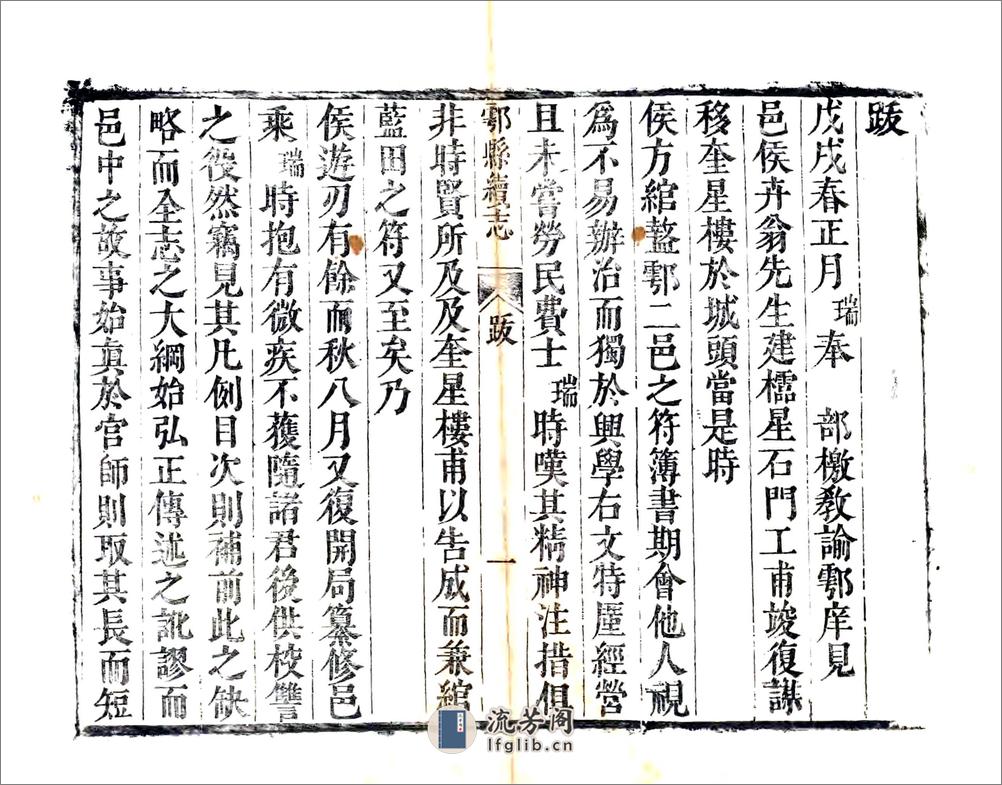 跋
戊戌春正月瑞奉　部檄教諭鄠庠見
邑侯卉翁先生建櫺星石門工甫竣復謀
移奎星樓於城頭當是時
侯方綰盩鄠二邑之符簿書期會他人視
爲不易辦治而獨於興學右文特厪經營
且未嘗勞民費士瑞時嘆其精神注措俱
鄠縣續志　跋　一
非時賢所及及奎星樓甫以告成而兼綰
藍田之符又至矣乃
侯遊刃有餘而秋八月又復開局纂修邑
乘瑞時抱有微疾不獲隨諸君後供校讐
之役然竊見其凡例目次則補前此之缺
略而全志之大綱始弘正傳述之訛謬而
邑中之故事始眞於官師則取其長而短
流芳阁
lfglib.cn